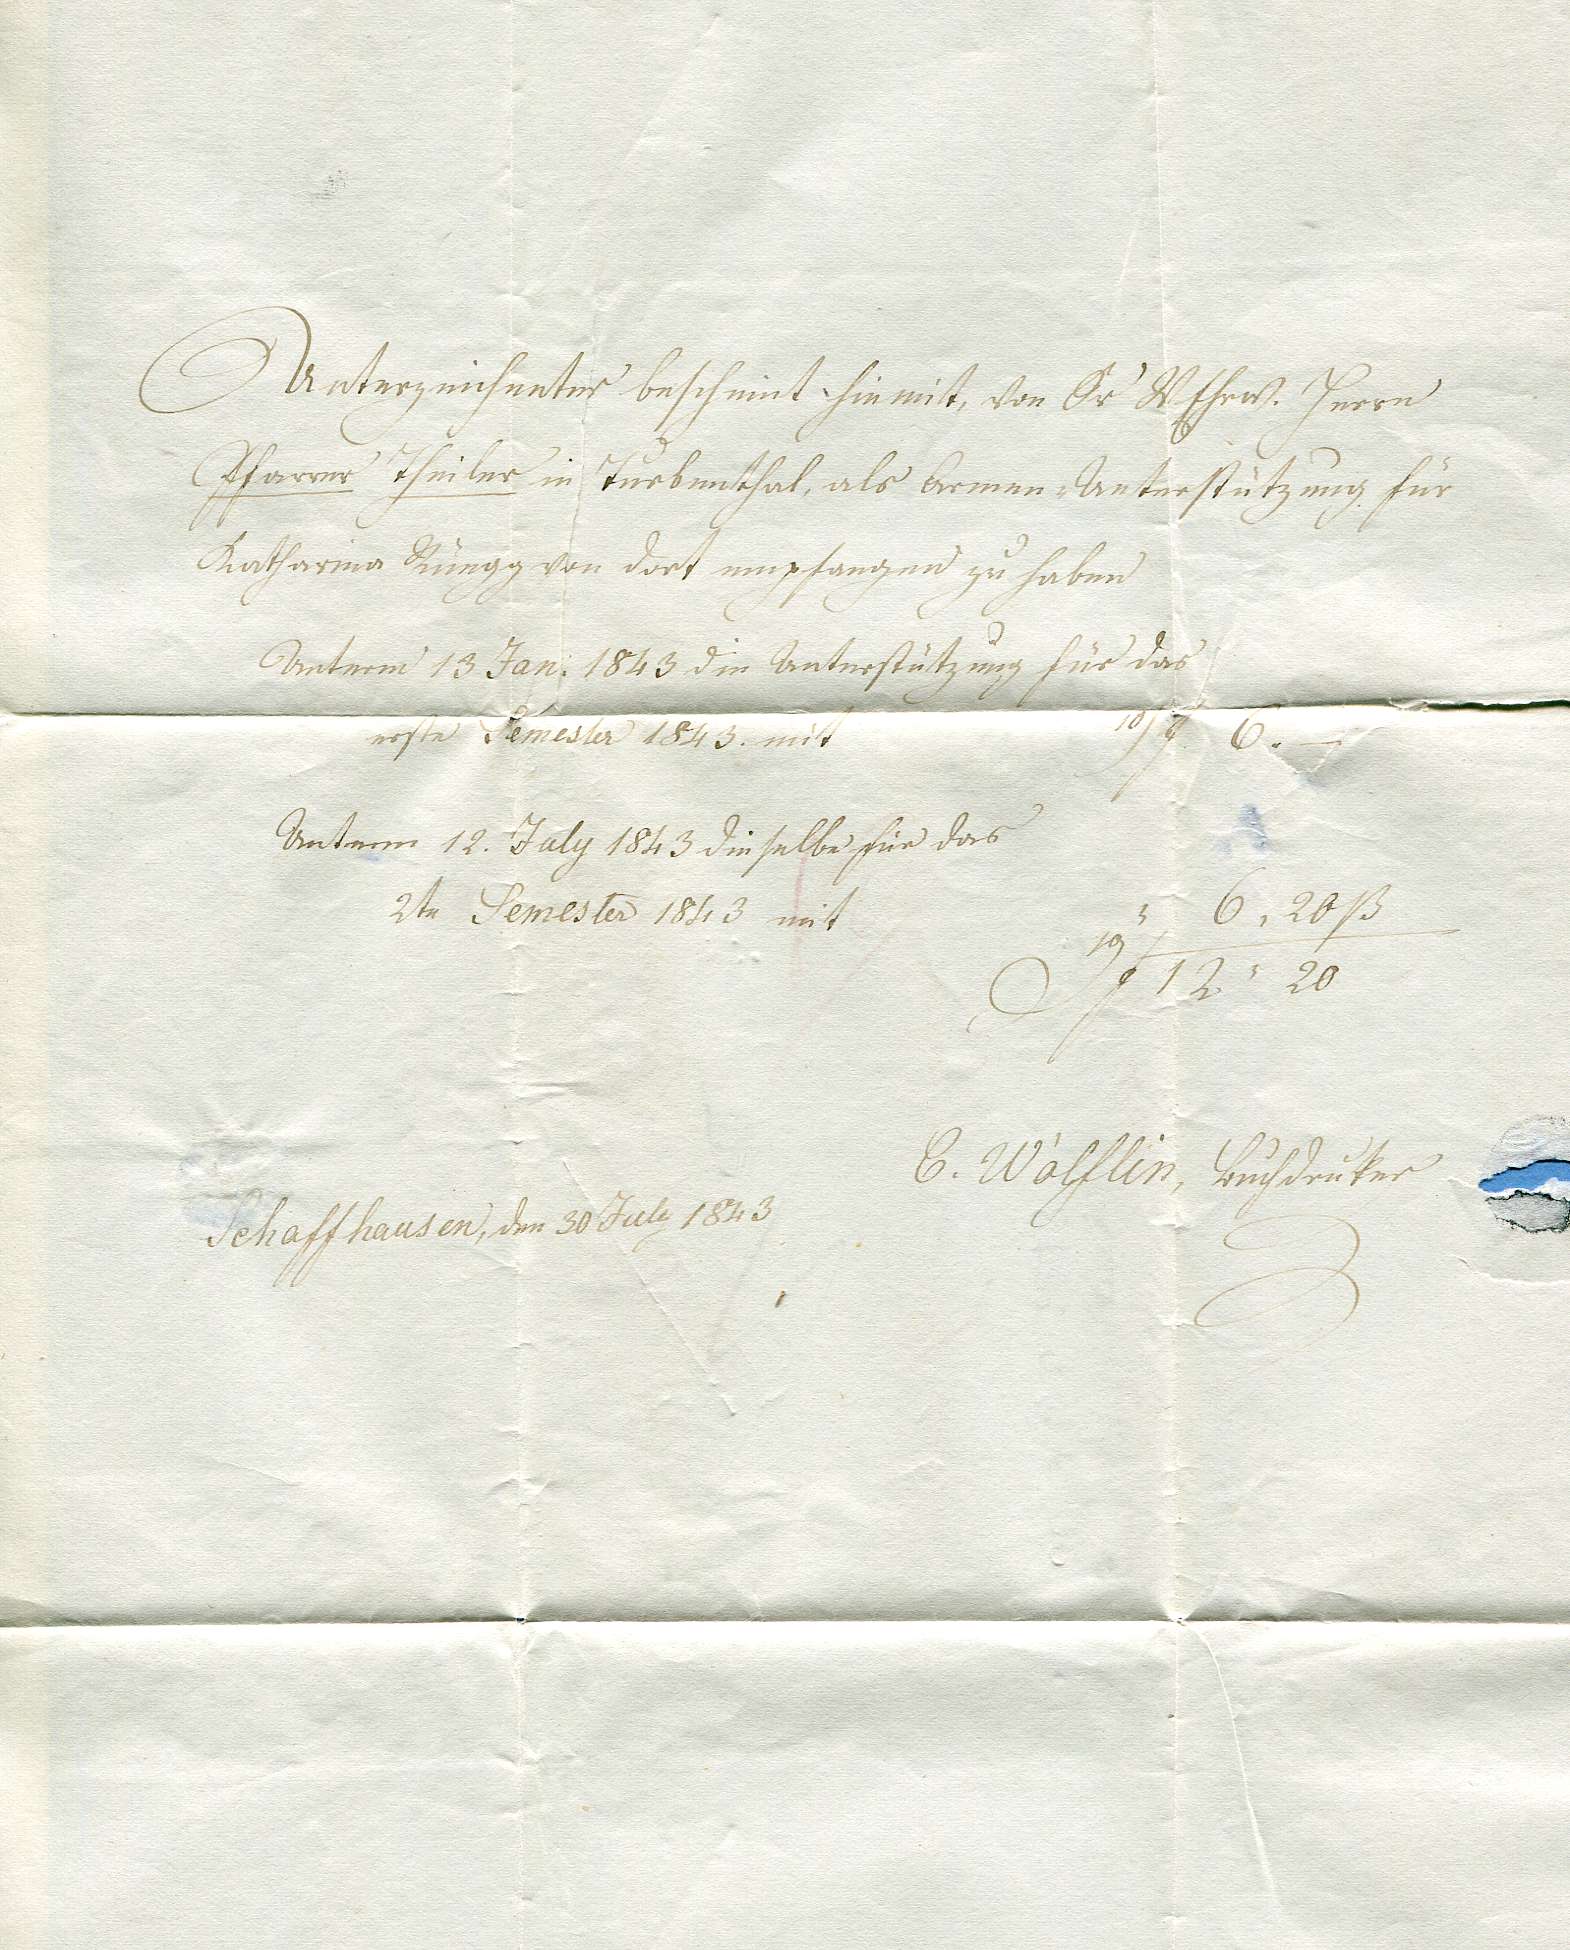 Unterzeichneter bescheint hiemit, von Sr Wohrw. Herrn
Pfarrer Theiler in Turbenthal, als Armen-Unterstützung für
Katharina Rüegg von dort empfangen zu haben
Unterm 13 Jan. 1843 die Unterstützung für das
erste Semester 1843. mit f 6. —
Unterm 12. July 1843 dieselbe für das
2te Semester 1843 mit " 6, 20 ß
f 12 " 20
C. Wölfflin, Buchdruker
Schaffhausen, den 30 July 1843